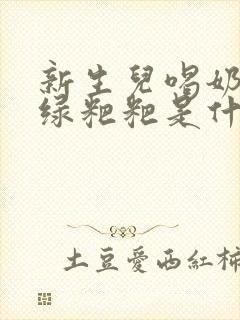 新生兒喝奶
绿粑粑是什
土豆愛西紅柿